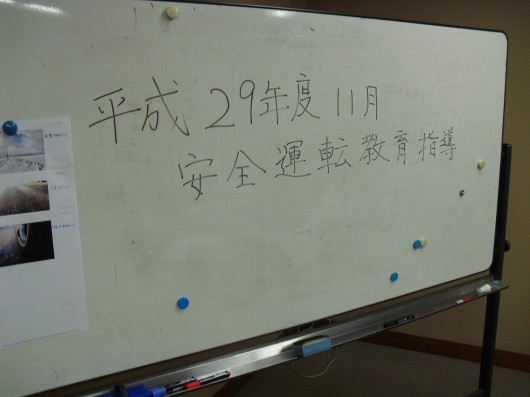 平成29年度11月
安全運転教育指導